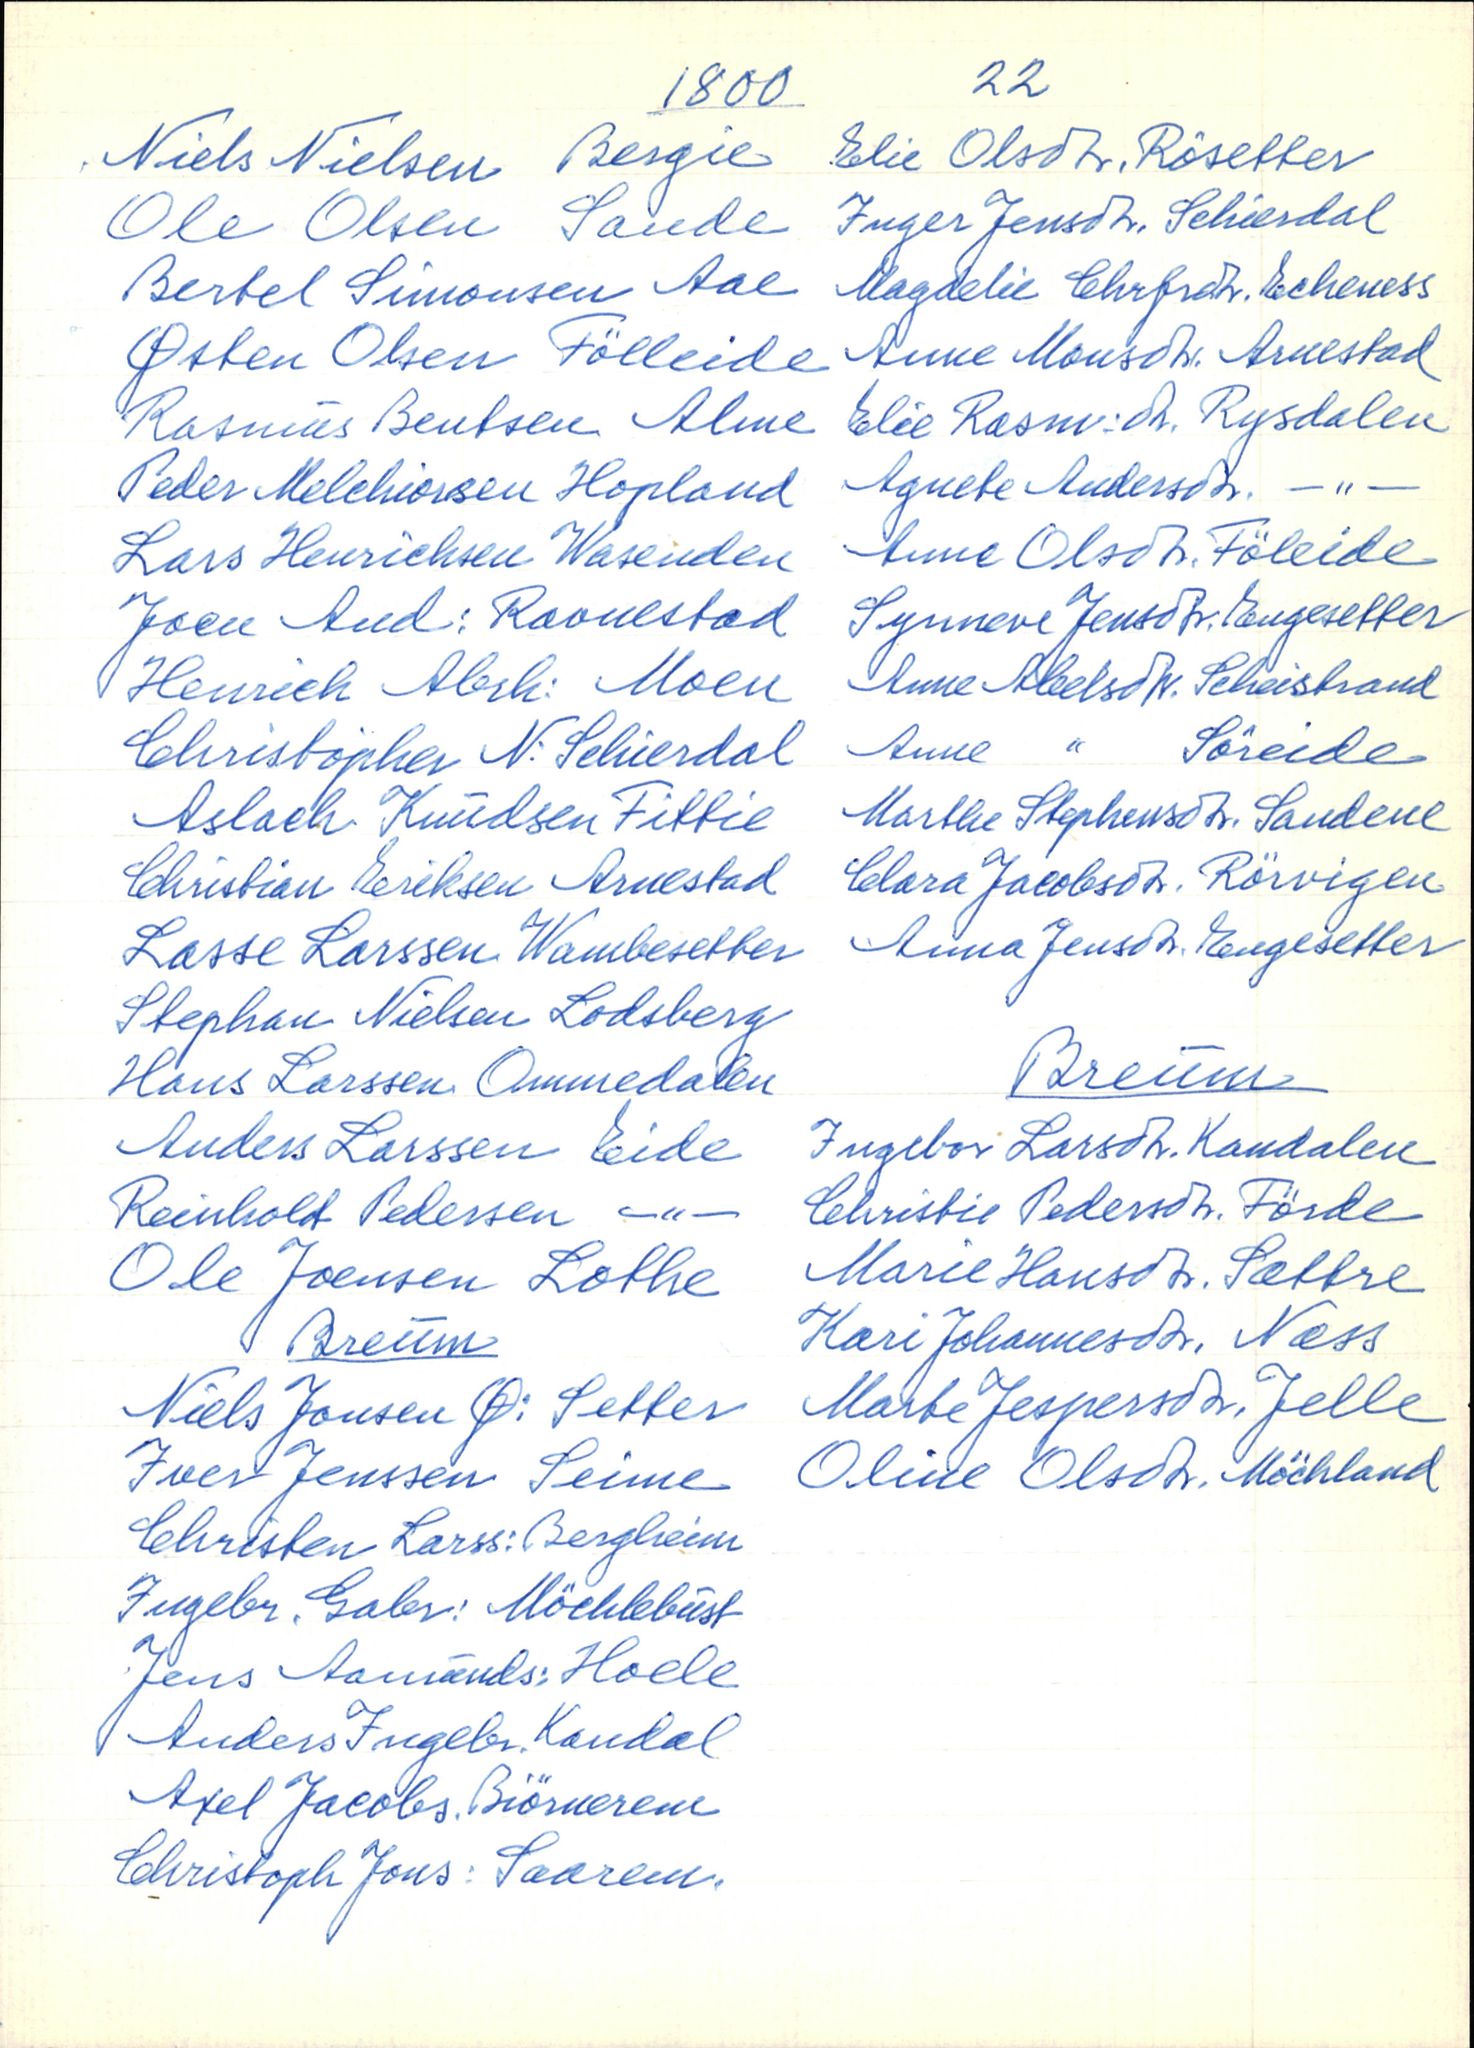 1800 22
Niels Nielsen Bergie
Ole Olsen Sande
Bertel Simonsen Aae
Østen Olsen Fölleide
Rasmus Bentsen Alme
Peder Melchiorsen Hopland
Lars Henrichsen Wasenden
Joen And: Ravnestad
Henrich Abrh: Moen
Christopher N: Schierdal
Aslach Knudsen Fittie
Christian Eriksen Arnestad
Lasse Larssen Wambesetter
Stephan Nielsen Lodsberg
Hans Larssen Ommedalen
Anders Larssen Eide
Reinholdt Pedersen —"—
Ole Joensen Lothe
Breum
Niels Jonsen Ø: Setter
Iver Jenssen Seime
Christen Larss: Bergheim
Ingebr. Gabr: Möchlebust
Jens Aamunds: Hoele
Anders Ingebr. Kandal
Axel Jacobs. Biörnerem
Christoph Jons: Saarem.
Elie Olsdtr. Rösetter
Inger Jensdtr. Schierdal
Magdelie Echeness
Anne Monsdtr. Arnestad
Elie Rasm:dtr. Rysdalen
Agnete Andersdtr. —"—
Anne Olsdtr. Föleide
Synneve Jensdtr. Engesetter
Anne Abelsdtr. Scheistrand
Anne " Söreide
Marthe Stephensdtr. Sandene
Clara Jacobsdtr. Rörvigen
Anna Jensdtr. Engesetter
Breum
Ingebor Larsdtr. Kandalen
Christie Pedersdtr. Förde
Marie Hansdtr. Sættre
Kari Johannesdtr. Næss
Marte Jespersdtr. Jelle
Oline Olsdtr. Möchland